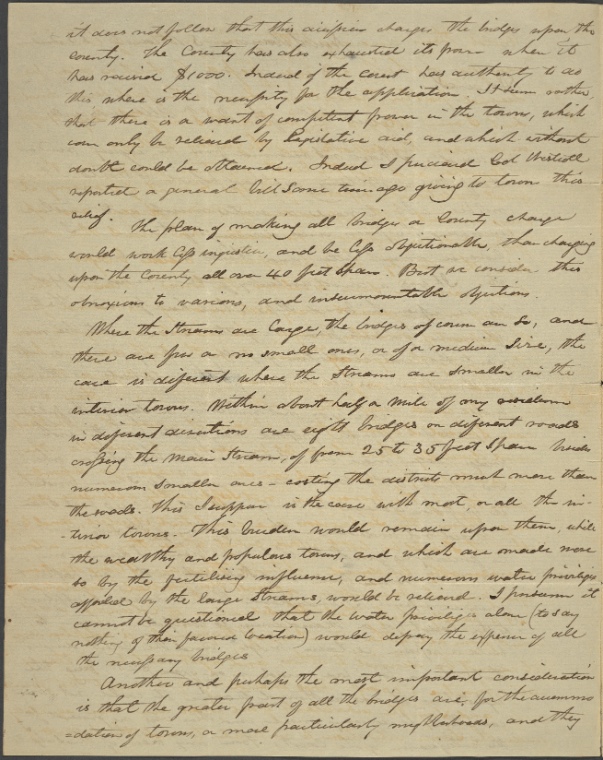 it does not follow that this decision charges the bridges upon the
county. The County has also exhausted its power when it
has raised $1000. Indeed if the court has authority to do
this where is the necessity for the application. It seems rather,
that there is a want of competent power in the town, which
can only be relieved by Legislative aid, and which without
doubt could be obtained. Indeed I perceived Col
reported a general bill some time ago giving to towns this
relief.
The plan of making all bridges a County charge
would work less injustice, and be less objectionable, than charging
upon the County all over 40 feet span. But we consider this
obnoxious to various, and insurmountable objections.
Where the Streams are large, the bridges of course are so, and
there are few or no small ones, or of a medium size, the
case is different where the Streams are smaller in the
interior towns. Within about half a mile of my residence
in different directions are eight bridges on different roads
crossing the main Stream, of from 25 to 35 feet Span besides
numerous smaller ones - costing the districts much more than
the roads. This I suppose is the case with most, or all the in-
-terior towns. This burden would remain upon them, while
the wealthy and populous towns, and which are made more
so by the fertilising influence, and numerous water privileges
afforded by the large Streams, would be relieved. I presume it
cannot be questioned that the water privileges alone (to say
nothing of their favored location) would defray the expense of all
the necessary bridges
Another and perhaps the most important consideration
is that the greater part of all the bridges are, for the accommo
=dation of towns, or more particularly neighborhoods, and they